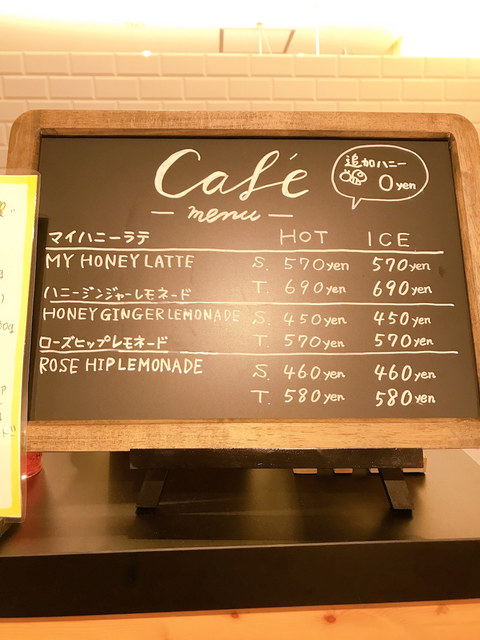 Café
menu
追加ハニー
0yen
マイハニーラテ HOT ICE
MY HONEY LATTE S. 570yen 570yen
T. 690yen 690yen
ハニージンジャーレモネード
HONEY GINGER LEMONADE S. 450yen 450yen
T. 570yen 570yen
ローズヒップレモネード
ROSE HIP LEMONADE S. 460yen 460yen
T. 580yen 580yen